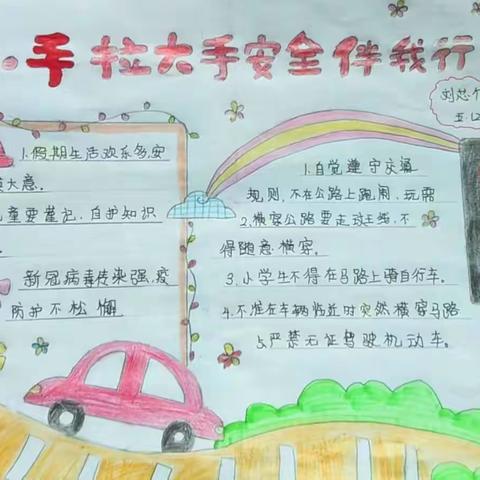 小手拉大手安全伴我行
刘芯
五.(2
1.假期生活欢乐多,安
大意。
儿童要谨记,自护知识
新冠病毒传染强,疫
防护不松懈
1.自觉遵守交通
规则,不在公路上跑闹、玩耍
2.横穿公路要走斑马线,不
得随意横穿。
3.小学生不得在马路上骑自行车。
4.不准在车辆临近时突然横穿马路
5.严禁无证驾驶机动车。